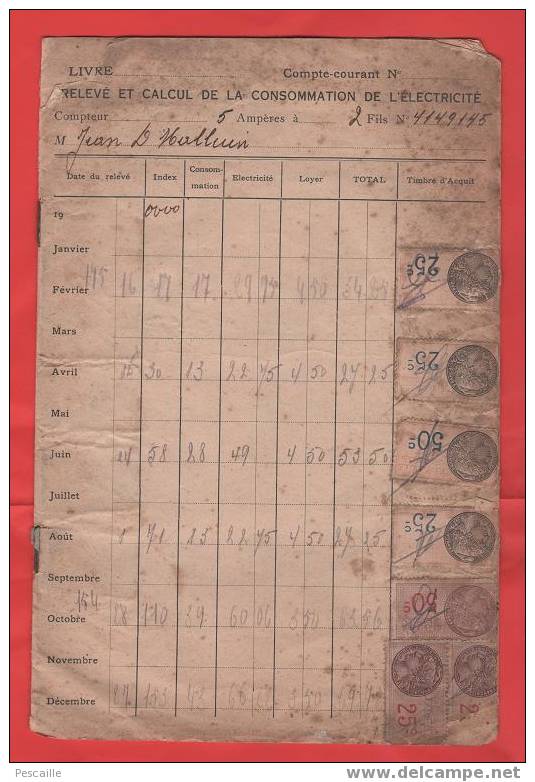 LIVRE Compte-courant N°
RELEVÉ ET CALCUL DE LA CONSOMMATION DE L'ÉLECTRICITÉ
Compteur 5 Ampères à 2 Fils N° 4149145
M Jean D'Halluin
Date du relevé Index Consom-mation Electricité Loyer TOTAL Timbre d'Acquit
19 0000
Janvier
25c
Février 16 17 17 29 75 4 50 34 25
Mars
25c
Avril 30 13 22 75 4 50 27 25
Mai
50c
Juin 24 58 28 49 4 50 53 50
Juillet
25c
Août 1 71 13 22 75 4 50 27 25
Septembre
154 50c
Octobre 28 110 39 60 06 3 50 63 56
Novembre
Décembre 3 50
25c 2
Pescaille
www.delcampe.net